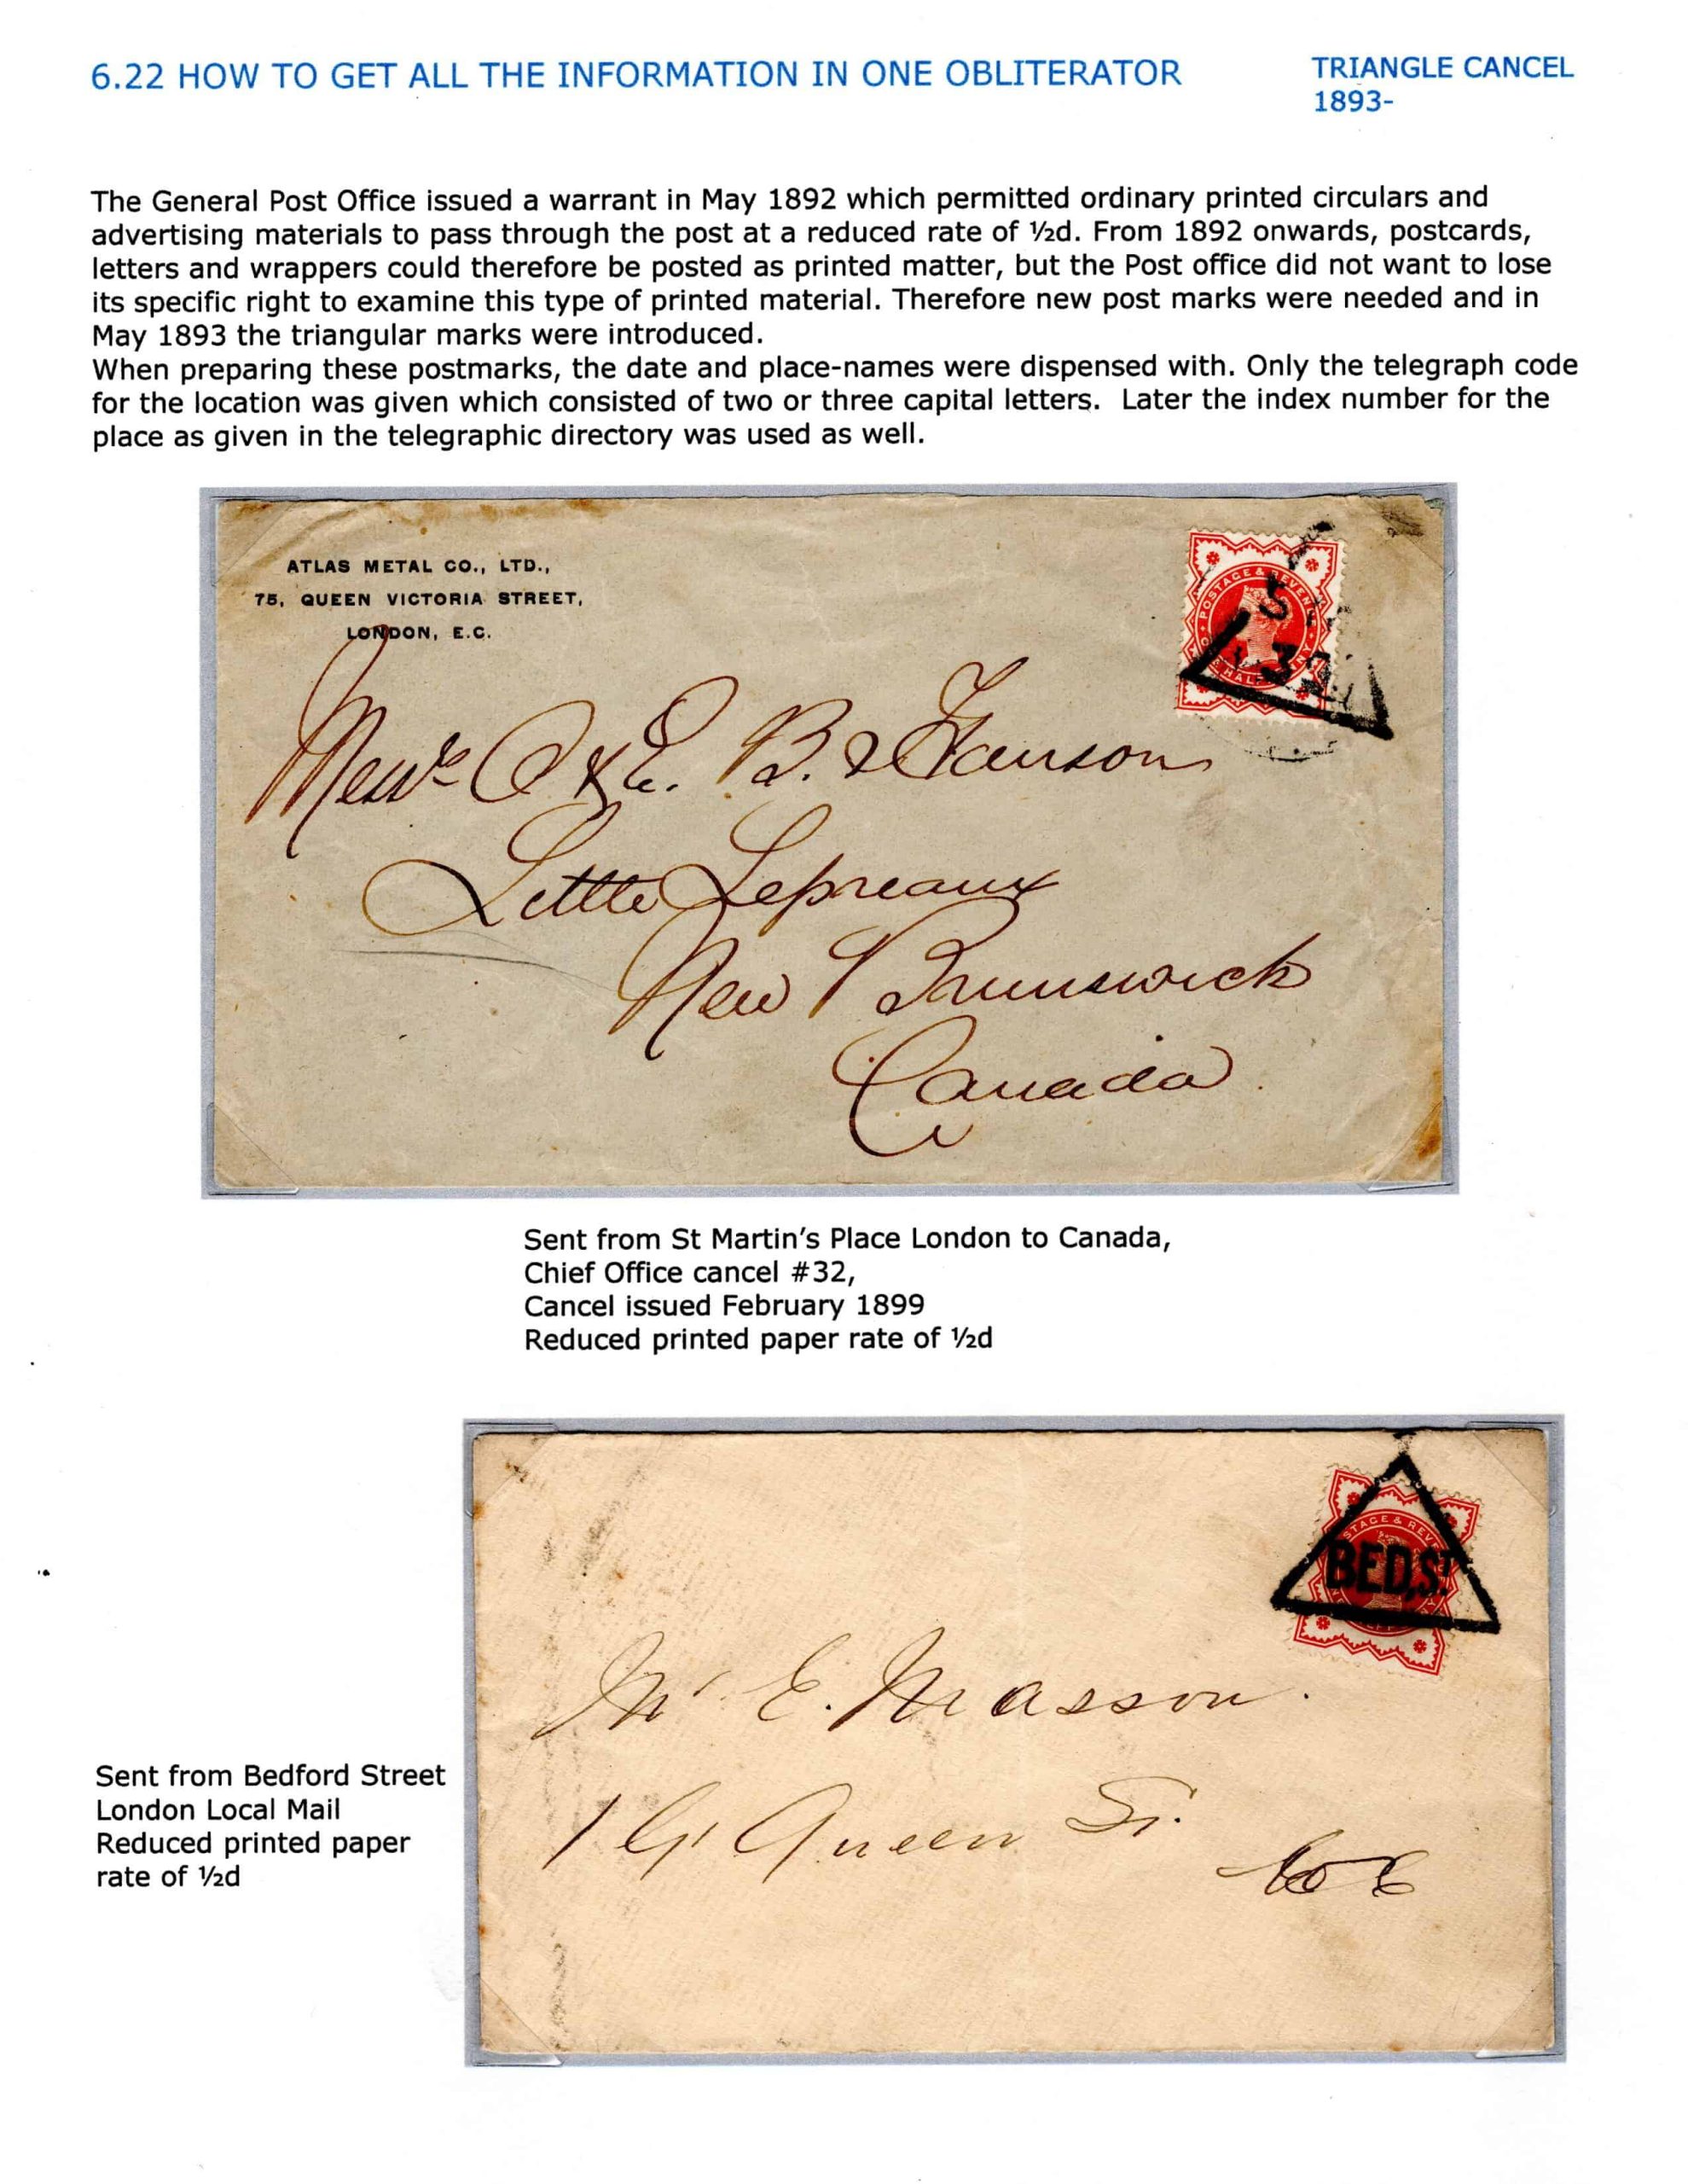 6.22 HOW TO GET ALL THE INFORMATION IN ONE OBLITERATOR
TRIANGLE CANCEL
1893-
The General Post Office issued a warrant in May 1892 which permitted ordinary printed circulars and
advertising materials to pass through the post at a reduced rate of ½d. From 1892 onwards, postcards,
letters and wrappers could therefore be posted as printed matter, but the Post office did not want to lose
its specific right to examine this type of printed material. Therefore new post marks were needed and in
May 1893 the triangular marks were introduced.
When preparing these postmarks, the date and place-names were dispensed with. Only the telegraph code
for the location was given which consisted of two or three capital letters. Later the index number for the
place as given in the telegraphic directory was used as well.
ATLAS METAL CO., LTD.,
75, QUEEN VICTORIA STREET,
LONDON, E.C.
POSTAGE & REVENUE
32
Messrs & E. B. Hanson
Little Lepreaux
New Brunswick
Canada.
Sent from St Martin's Place London to Canada,
Chief Office cancel #32,
Cancel issued February 1899
Reduced printed paper rate of ½d
BED.ST
Mr E. Masson.
Queen St.
Sent from Bedford Street
London Local Mail
Reduced printed paper
rate of ½d